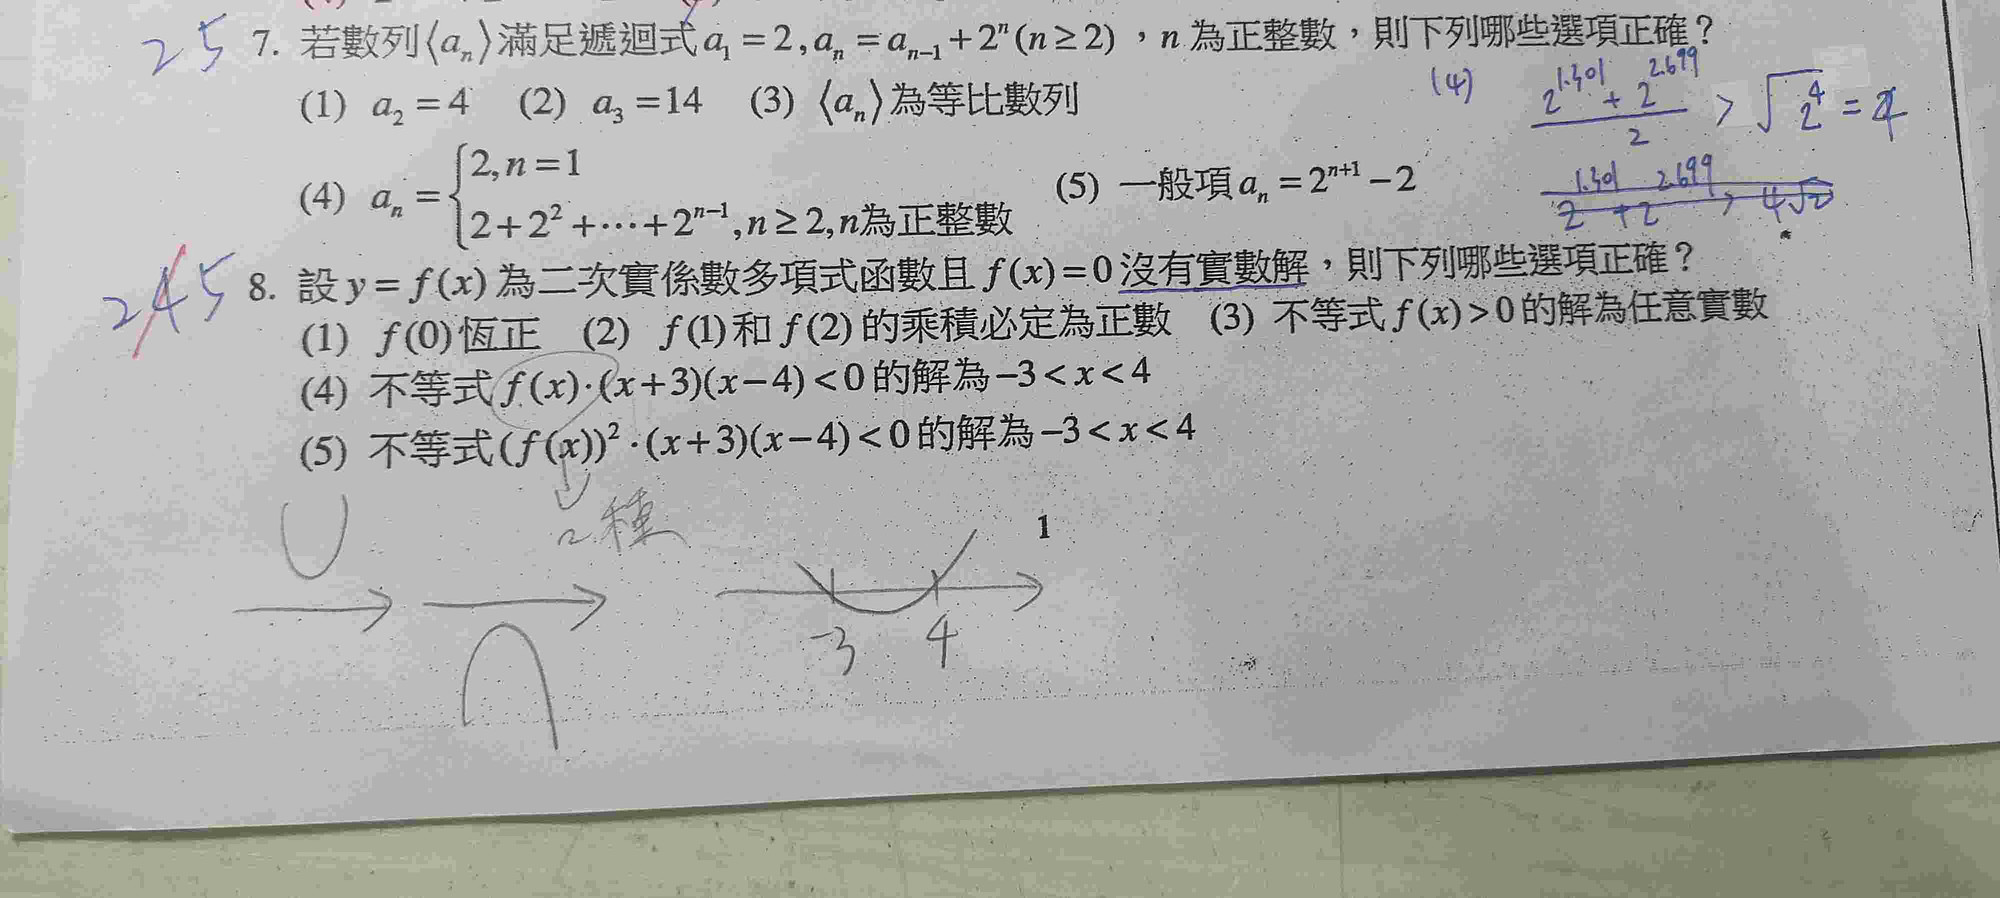 25 7. 若數列⟨aₙ⟩滿足遞迴式 a₁ = 2, aₙ = aₙ₋₁ + 2ⁿ (n ≥ 2) ,n 為正整數,則下列哪些選項正確?
(1) a₂ = 4 (2) a₃ = 14 (3) ⟨aₙ⟩為等比數列
(4) aₙ = { 2, n = 1
2 + 2² + ⋯ + 2ⁿ⁻¹, n ≥ 2, n為正整數
(5) 一般項 aₙ = 2ⁿ⁺¹ − 2
(4) (2^1.301 + 2^2.699) / 2 > √2⁴ = 4
2^1.301 + 2^2.699 > 4√2
245 8. 設 y = f(x) 為二次實係數多項式函數且 f(x) = 0 沒有實數解,則下列哪些選項正確?
(1) f(0) 恆正 (2) f(1) 和 f(2) 的乘積必定為正數 (3) 不等式 f(x) > 0 的解為任意實數
(4) 不等式 f(x)·(x+3)(x−4) < 0 的解為 −3 < x < 4
(5) 不等式 (f(x))²·(x+3)(x−4) < 0 的解為 −3 < x < 4
2種
1
-3 4